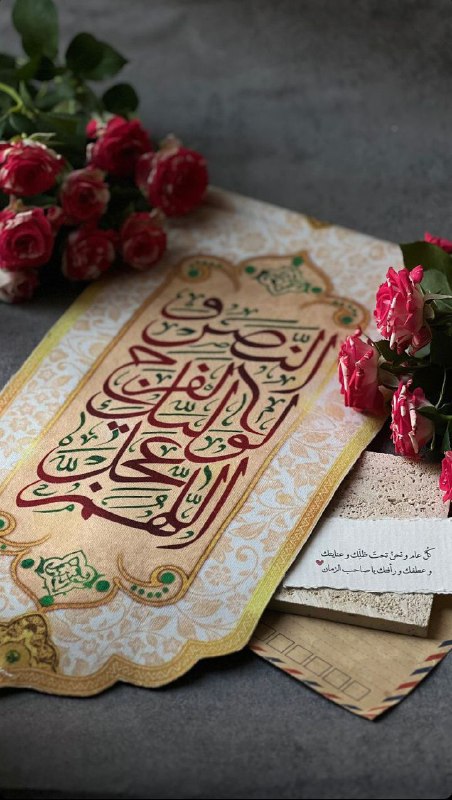 اللّهُمَّ عَجِّل
لِوَلِیِّكَ الفَرَجَ
وَ النَّصر
كلّ عام و نحنُ تحتَ ظلّك و عنايتك
و عطفك و رأفتك يا صاحب الزمان